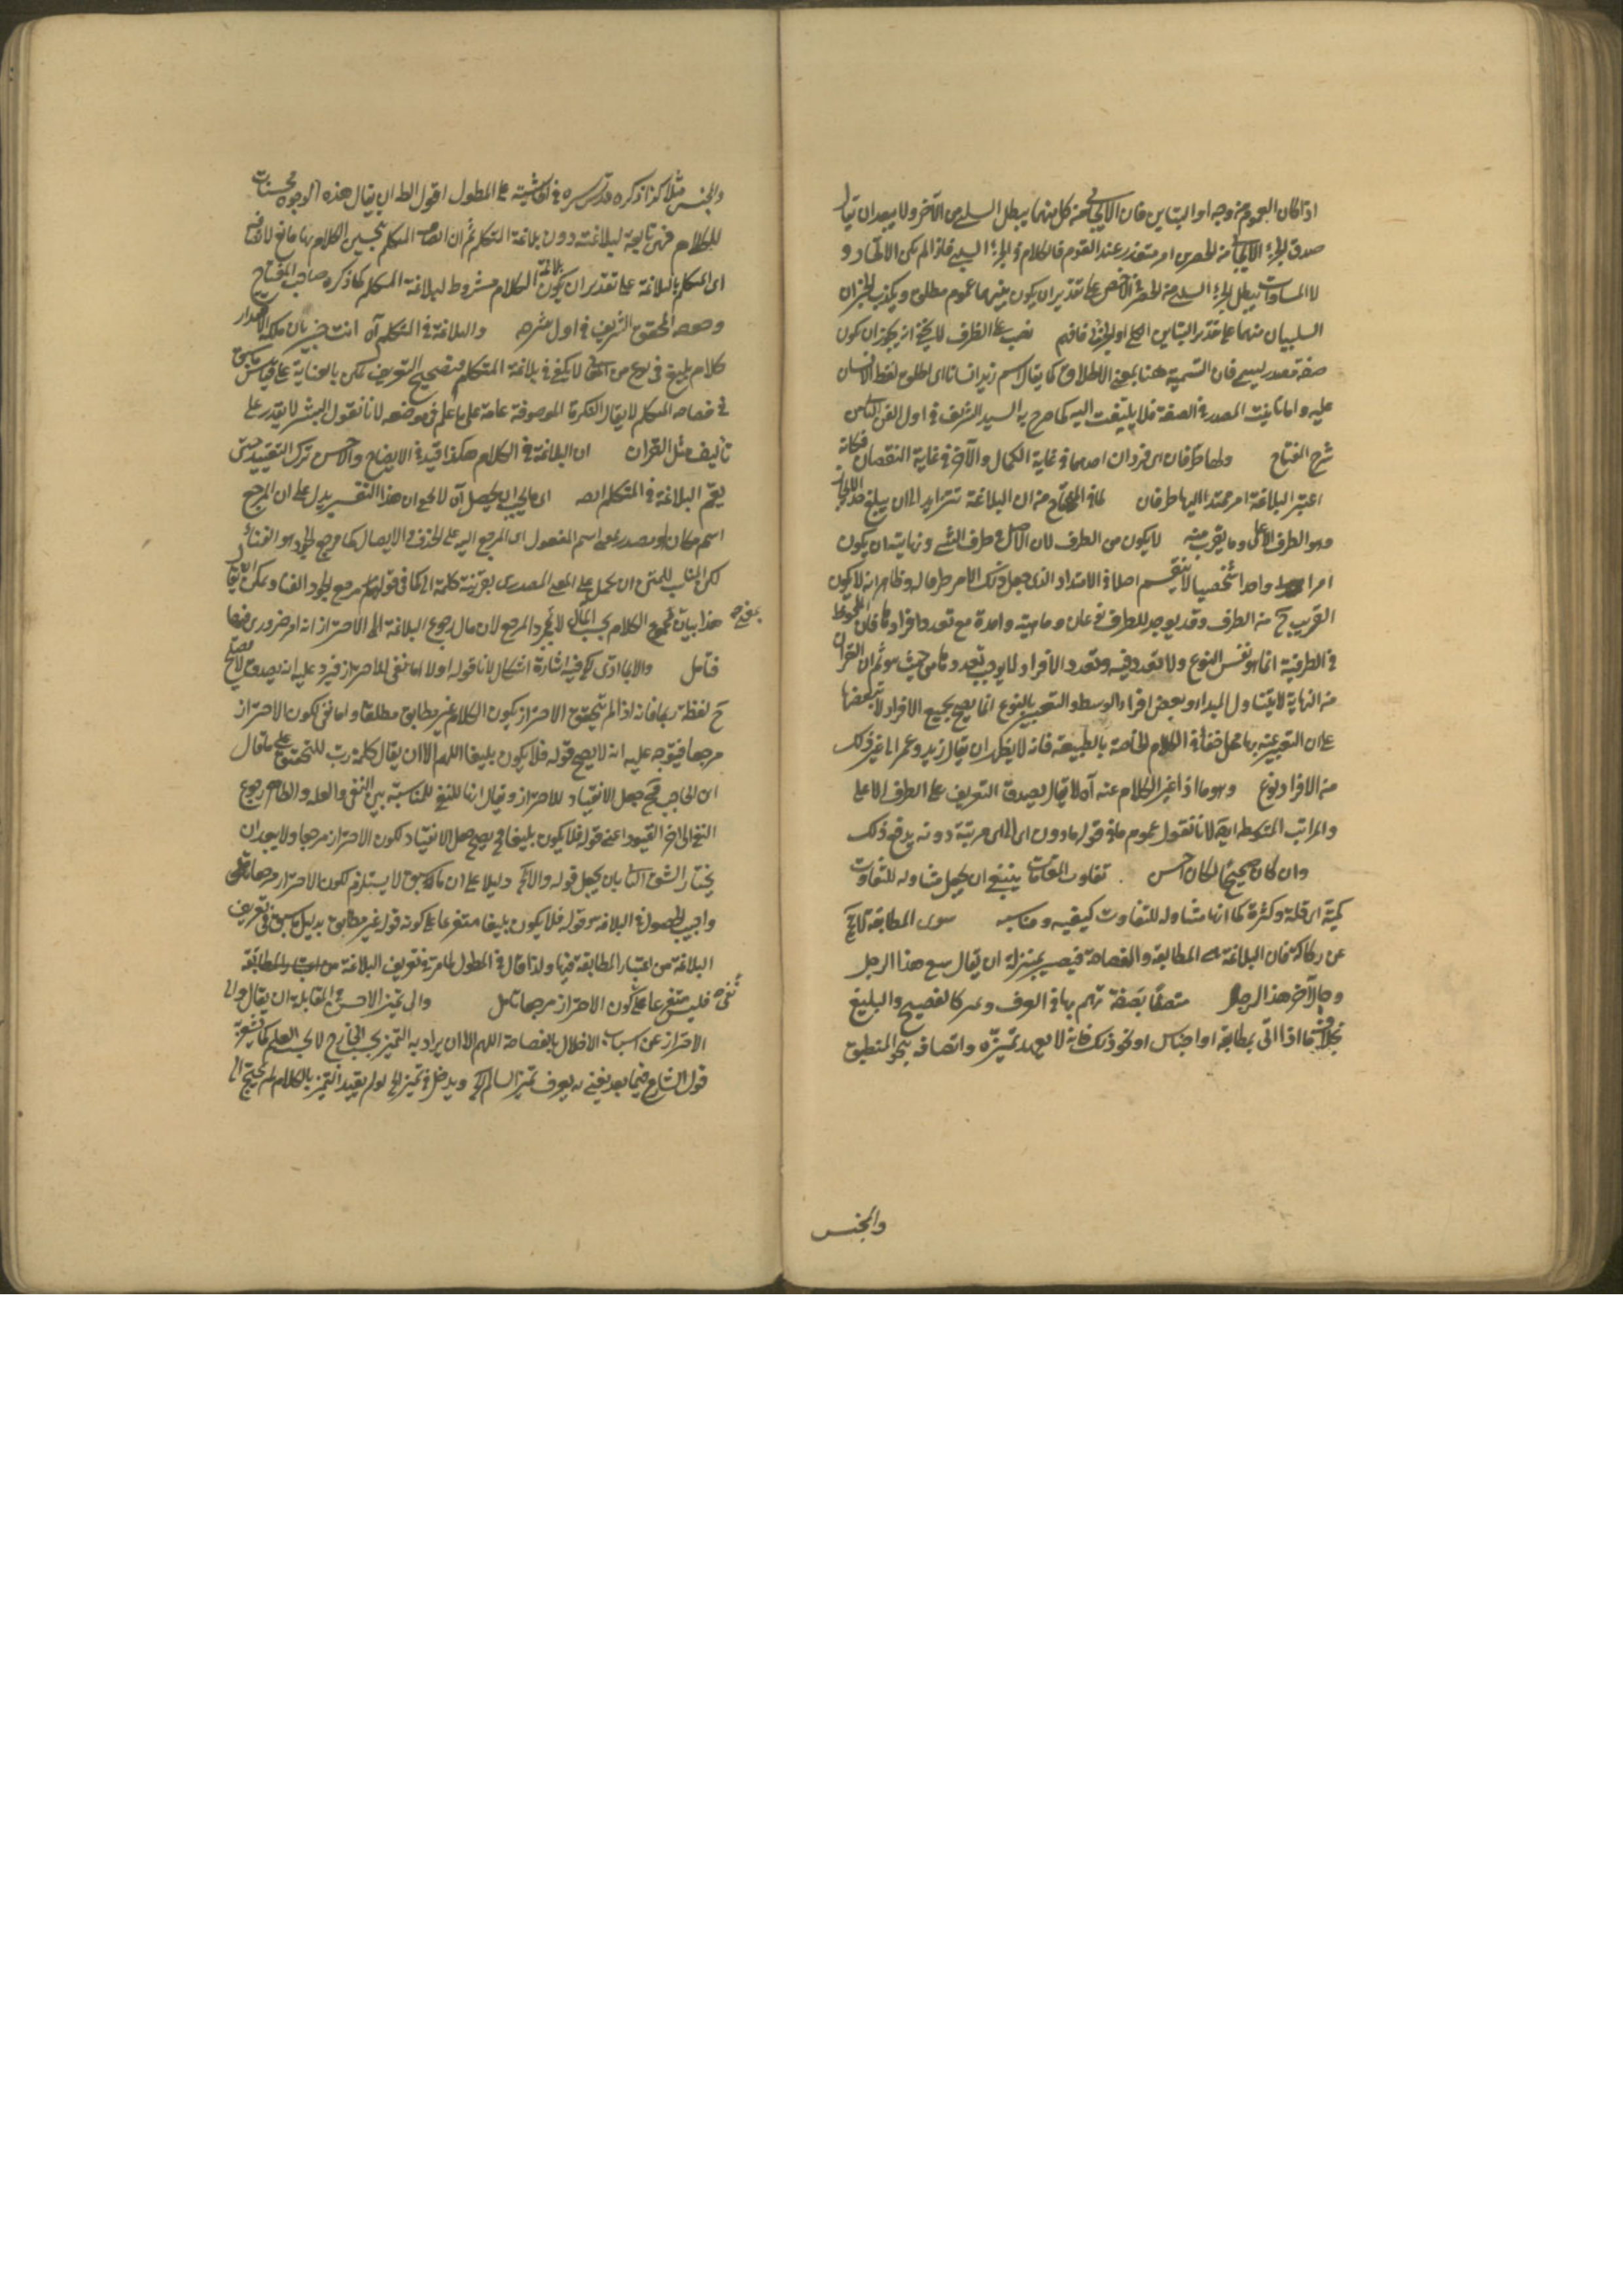 اذا كان العموم من وجه او التباين فان الايجابي من كل منهما يبطل السلبي من الآخر ولا يبعد ان يقال
صدق الجزء الايجابي من الحصرين امر متقرر عند القوم فالكلام في الجزء السلبي فاذا لم يكن الاتحاد و
لا المساواة يبطل الجزء السلبي من الحصر الاخص على تقدير ان يكون بينهما عموم مطلق ويكذب الجزءان
السلبيان منهما على تقدير التباين الكلي او الجزئي فافهم نصب على الظرف لا يخفى انه يجوز ان يكون
صفة مصدر ليسمى فان التسمية هنا بمعنى الاطلاق كما يقال اسم زيد انسانا اى اطلق لفظ الانسان
عليه واما تانيث المصدر في الصفة فلا يلتفت اليه كما صرح به السيد الشريف في اول الفن الثامن
شرح المفتاح ولها طرفان اى فردان احدهما في غاية الكمال والآخر في غاية النقصان فكانه
اعتبر البلاغة امر ممتد اليها طرفان لما في المفتاح من ان البلاغة تتزايد الى ان يبلغ حد الاعجاز
وهو الطرف الاعلى وما يقرب منه لا يكون من الطرف لان الاصل في طرف الشيء ونهايته ان يكون
امرا واحدا شخصيا لا ينقسم اصلا في الامتداد الذى جعل ذلك الامر طرفا له وظاهر انه لا يكون
القريب ح من الطرف وقد يوجد للطرف نوعان وماهية واحدة مع تعدد افراد
في الطرفية انما هو نفس النوع ولا تعدد فيه وتعدد الافراد لا يوجب تعدده من حيث هو ثم ان القرآن
من النهاية لا يتناول المبدا وبعض افراد الوسط والتعبير بالنوع انما يصح بجميع الافراد لا ببعضها
على ان التعبير عنه بها محل خفاء في الكلام الخاصة بالطبيعة فانه لا يظهر ان يقال زيد وعمر الى غير ذلك
من الافراد نوع وهو ما اذا غير الكلام عنه آه لا يقال يصدق التعريف على الطرف الاعلى
والمراتب المتوسطة ايضا لانا نقول عموم ما في قوله ما دون اى الى اى مرتبة دونه يدفع ذلك
وان كان صحيحا لكان احسن تفاوت المقامات ينبغي ان يجعل متناوله للتفاوت
كمية اى قلة وكثرة كما انها متناوله للتفاوت كيفية ومناسبة سوى المطابقة لا يخ
عن ركاكة فان البلاغة المطابقة والفصاحة فيصير بمنزلة ان يقال سمع هذا الرجل
وحال آخر هذا الرجل متصفا بصفة تهم بها في العرف وعمر كالفصيح والبليغ
بخلاف ما اذا اتى بمطابقة او اجناس او نحو ذلك فانه لا يعد تميزه واتصافه بنحو المنطبق
والجنس
والجنس مثلا كذا ذكره قدس سره في الحاشية على المطول اقول الظ ان يقال هذه الوجوه محسنات
للكلام فهي تابعة لبلاغته دون بلاغة المتكلم ثم ان اتصاف المتكلم بتحسين الكلام بها مانع لاتصاف
اى المتكلم بالبلاغة على تقدير ان يكون بلاغة الكلام مشروط لبلاغة المتكلم كما ذكره صاحب المفتاح
وصححه المحقق الشريف في اول شرحه والبلاغة في المتكلم آه انت خبير بان ملكة الاقتدار
كلام بليغ في نوع من المعاني لا يكفي في بلاغة المتكلم فتصحيح التعريف يمكن بالعناية على قياس ما سبق
في فصاحة المتكلم لا يقال النكرة الموصوفة عامة على ما علم في موضعه لانا نقول البشر لا يقدر على
تاليف مثل القرآن ان البلاغة في الكلام هكذا قيد في الايضاح والاحسن ترك التقييد حتى
يعم البلاغة في المتكلم ايضا اى ما يجب ان يحصل آه لا يخفى ان هذا التفسير يدل على ان المرجع
اسم مكان او مصدر بمعنى اسم المفعول اى المرجع اليه على الحذف والايصال كما مرجع الجود هو الغناء
لكن المناسب للمتن ان يحمل على المعنى المصدرى بقرينة كلمة الى كما في قولهم مرجع الجود الغناء ويمكن ان يقال
هذا بيان لمجموع الكلام بحسب المآل لا لمجرد المرجع لان مآل رجوع البلاغة الى الاحتراز انه امر ضرورى فيها بمعنى
فتامل والا لما ادى آه فيه اشارة اشكال لانا قوله او لا اما نفى للاحتراز فيرد عليه انه يصدق لا يصلح
ح لفظة ربما فانه اذا لم يتحقق الاحتراز يكون الكلام غير مطابق مطلقا واما نفى لكون الاحتراز
مرجعا فيتوجه عليه انه لا يصح قوله فلا يكون بليغا اللهم الا ان يقال كلمة رب للتحقيق على ما قال
ابن الحاجب فح جعل الانتفاء للاحتراز ويقال انها للنفي للمناسبة بين النفى والعله والظاهر رجوع
النفى الى آخر القيود اعنى قوله فلا يكون بليغا فح يصح جعل الانتفاء لكون الاحتراز مرجعا ولا يبعد ان
يختار الشق الثاني بان يجعل قوله والا آه دليلا على ان ما سبق لا يستلزم لكون الاحتراز مرجعا
واجب الحصول في البلاغة وقوله فلا يكون بليغا متفرعا على كونه قوله غير مطابق بدليل ما سبق في تعريف
البلاغة من اعتبار المطابقة فيها ولذا قال في المطول لما مر في تعريف البلاغة من اعتبار المطابقة
فليس متفرعا على كون الاحتراز مرجعا تامل والى تميز الاحسن في المقابلة ان يقال والى
الاحتراز عن اسباب الاخلال بالفصاحة اللهم الا ان يراد به التميز بحسب الخارج لا بحسب العلم كما يشعر به
قول الشارح فيما بعد يعنى به يعرف تميز السالم آه ويدخل في تميز الخ لو لم يقيد التميز بالكلام لم يحتج الى